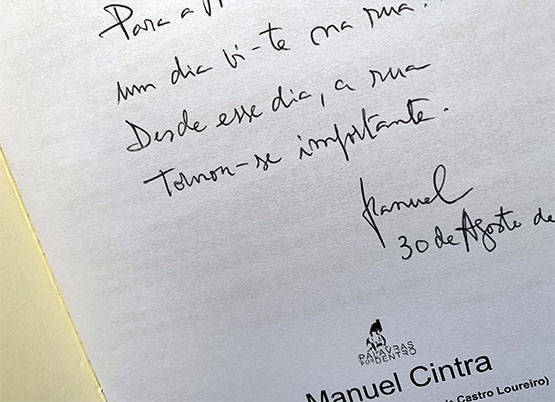 Para a
um dia vi-te na rua.
Desde esse dia, a rua
tornou-se importante.
Manuel
30 de Agosto de
PALAVRAS
POR DENTRO
Manuel Cintra
Castro Loureiro)